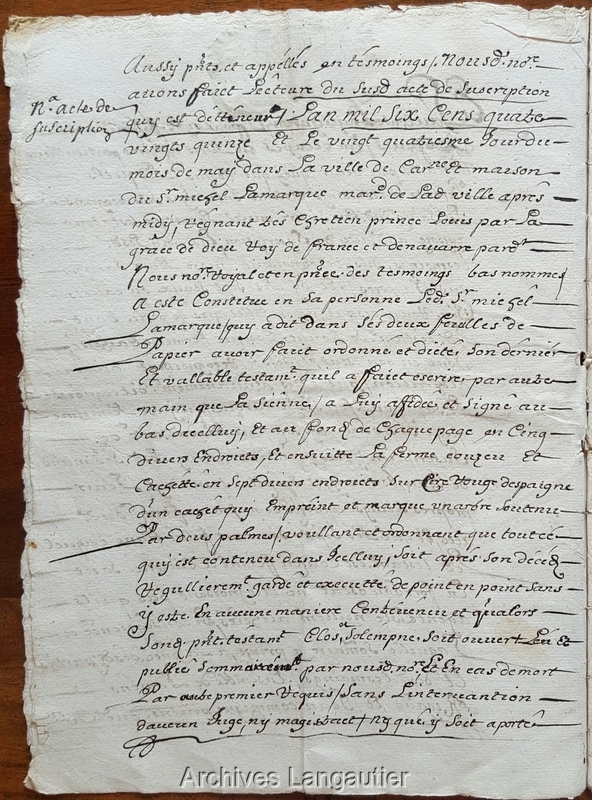 Aussy pnts, et appellés en tesmoings / Nousd. nore
avons faict Lecture du Susd acte de Suscription
Na acte de
suscription
quy est detteneur / Lan mil Six Cens quatre
vingts quinze Et Le vingt quatriesme Jour du
mois de may dans La ville de Carne Et maison
du Sr. michel Lamarque mard. de Lad ville aprés
midy, Regnant tés Chretien prince Louis par La
grâce de dieu Roy de france et denavarre pardt
Nous nore. Royal et en pnce. des tesmoings bas nommes
A esté Constitue en sa personne Led. Sr. michel
Lamarque / quy a dit dans sés deux feuilles de
Papier avoir faict ordonné et dicté, Son dérniér
Et vallable testamt. quil a faict escrire, par autre
main que La siénne, / a Luy affidée et Signé au
bas dicelluy, Et au fond de Chaque page en Cinq
divers Endroiets, Et ensuitte La fermé couzeu Et
Cachetté en Sept divers endroiets Sur Cire Rouge despaigne
d'un cachet quy Empreint et marque un arbre Soutenu
Par deus palmes / voullant et ordonnant que tout cé
quy est conteneu dans Icelluy, Soit aprés Son décéds
Regullieremt. gardé et executté de point en point Sans
y estre En aucune maniere Contreveneu et qualors
Sond. pnt. testamt Clos, Solempne soit ouvert Leu Et
publié Sommairemt. par nousd. nore. Et En cas de mort
Par autre premier Requis / Sans L'intervantion
daucun Juge, ny magistrect ny quê, y Soit aporté
Archives Langautier